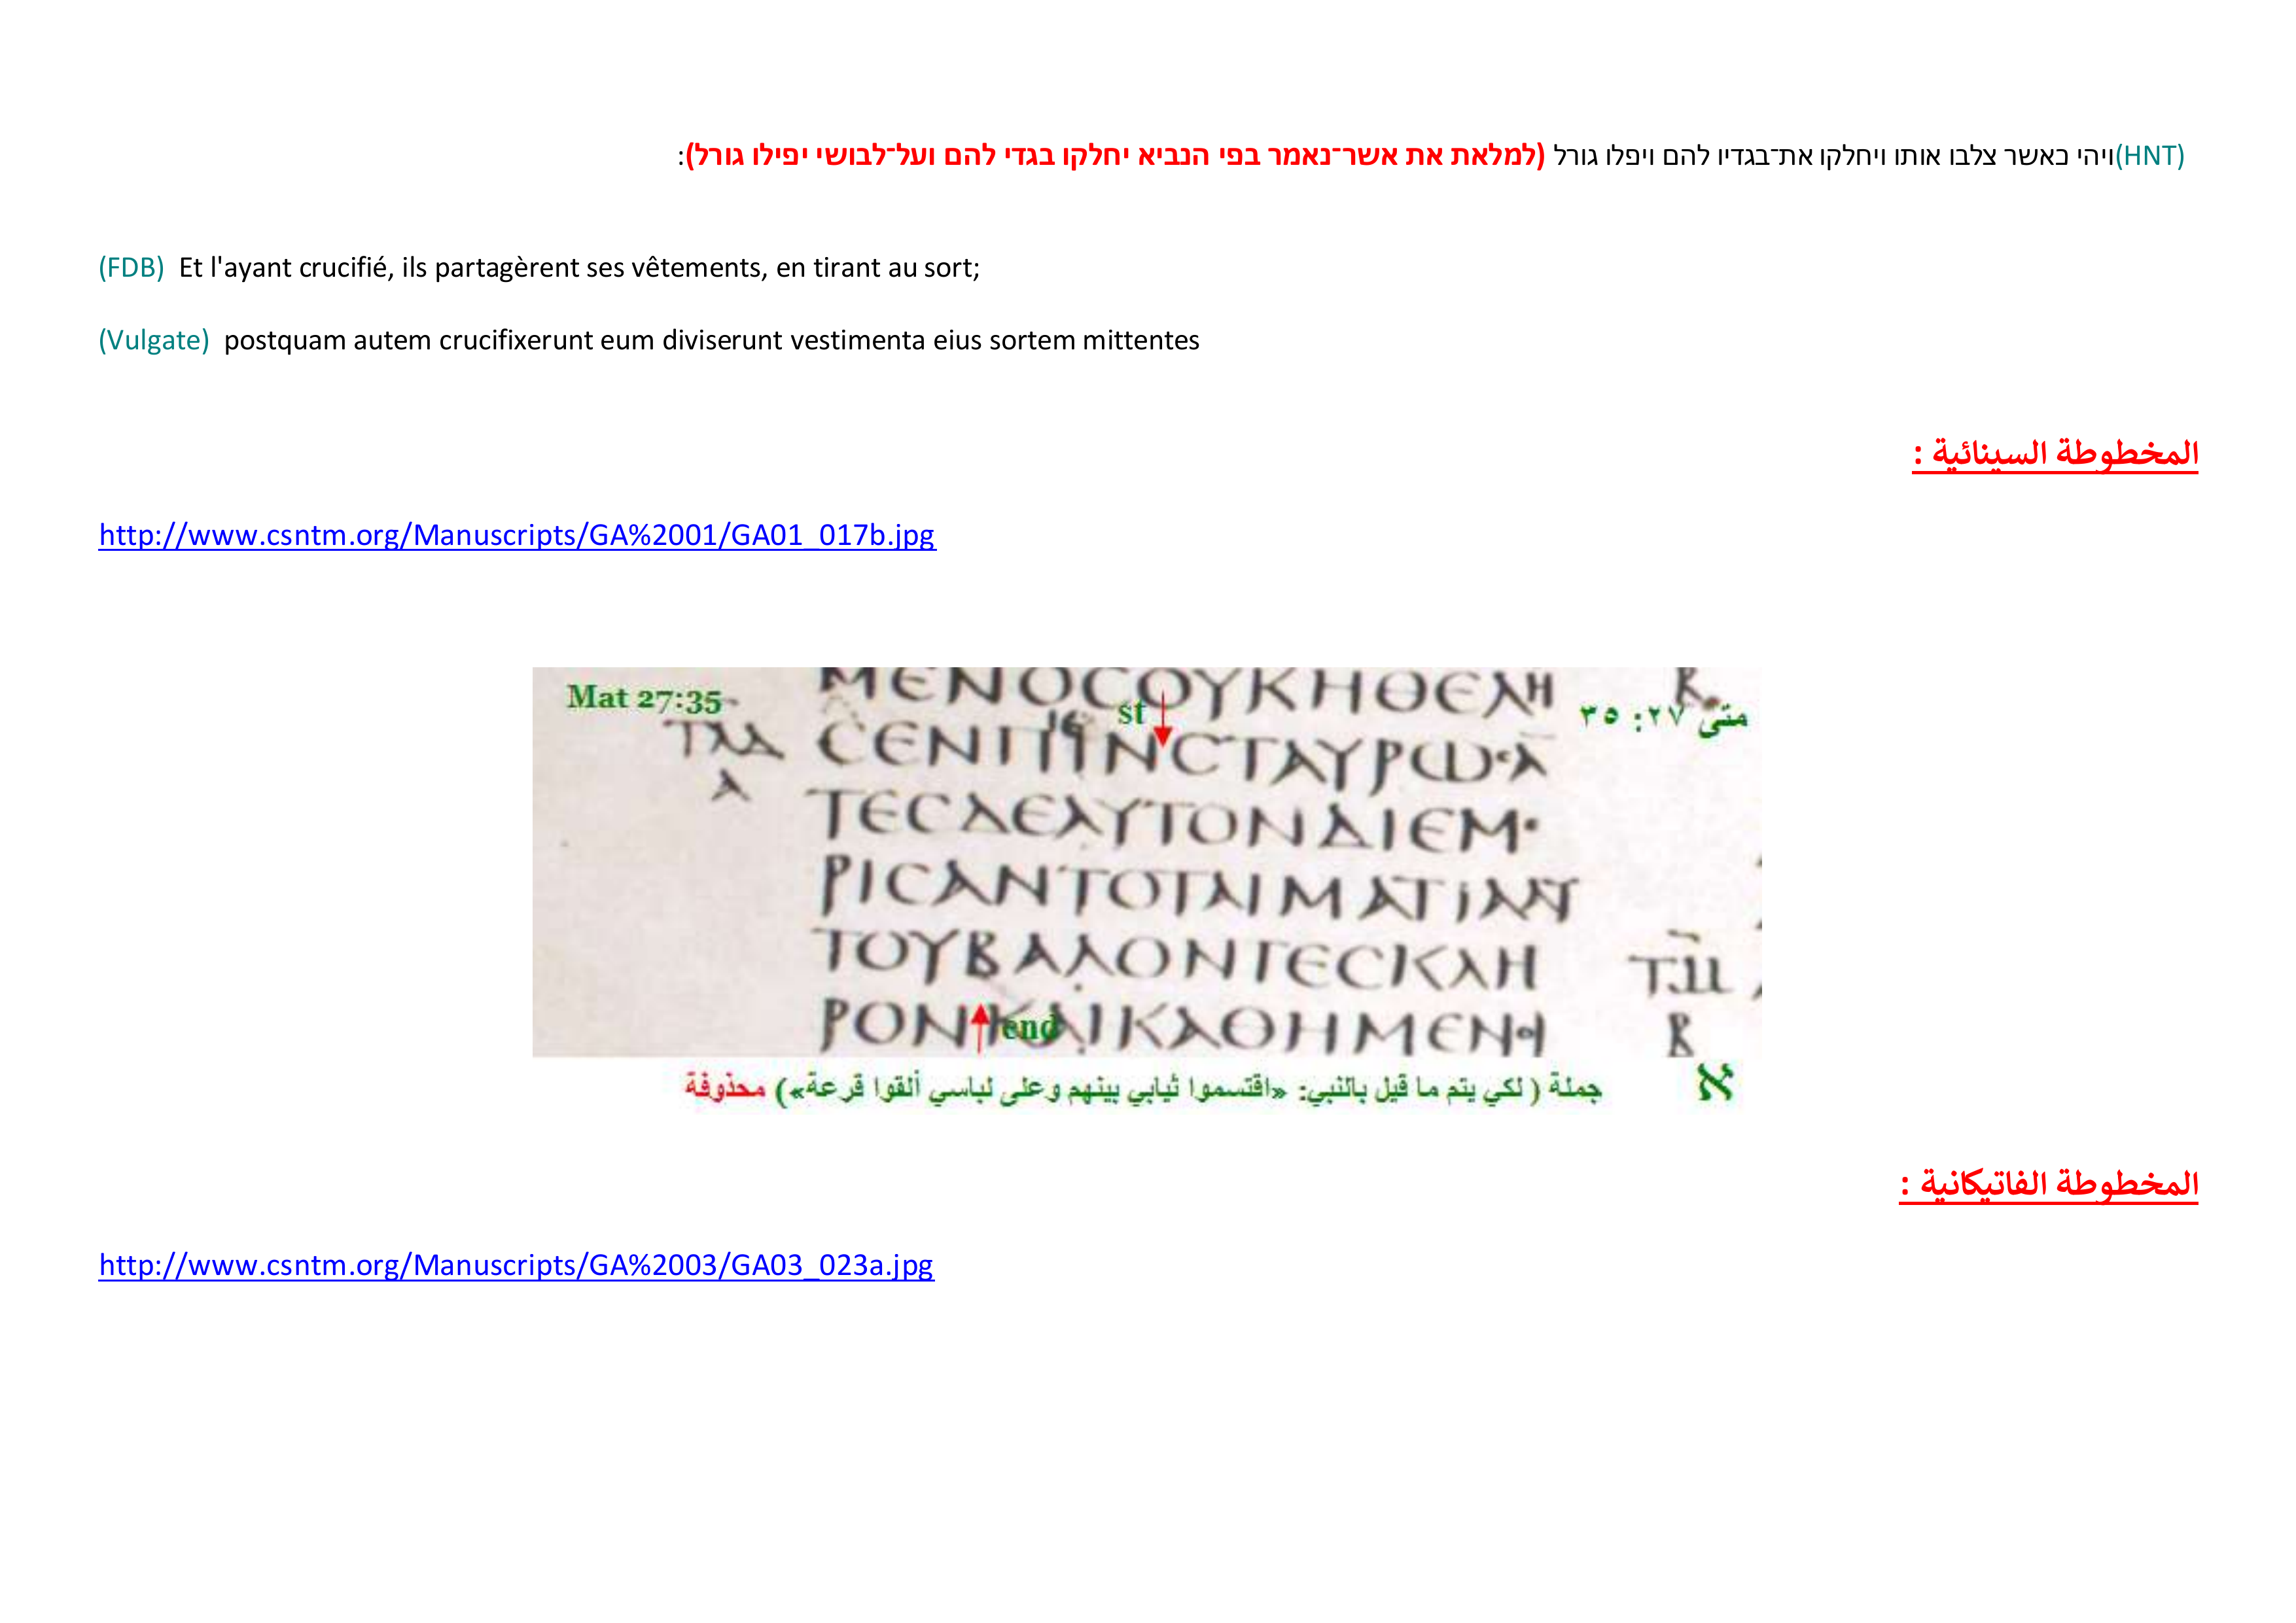 (HNT)ויהי כאשר צלבו אותו ויחלקו את־בגדיו להם ויפלו גורל (למלאת את אשר־נאמר בפי הנביא יחלקו בגדי להם ועל־לבושי יפילו גורל):
(FDB) Et l'ayant crucifié, ils partagèrent ses vêtements, en tirant au sort;
(Vulgate) postquam autem crucifixerunt eum diviserunt vestimenta eius sortem mittentes
المخطوطة السينائية :
http://www.csntm.org/Manuscripts/GA%2001/GA01_017b.jpg
Mat 27:35
متى ٢٧: ٣٥
ΜΕΝΟCΟΥΚΗΘΕΛΗ
st
CΕΝΠΙΝCΤΑΥΡΩ
ΤΕCΔΕΑΥΤΟΝΔΙΕΜ
ΡΙCΑΝΤΟΤΑΙΜΑΤΙΑΑΥ
ΤΟΥΒΑΛΟΝΤΕCΚΛΗ
ΡΟΝΚΑΙΚΑΘΗΜΕΝΟΙ
end
Β
א
جملة ( لكي يتم ما قيل بالنبي: «اقتسموا ثيابي بينهم وعلى لباسي ألقوا قرعة») محذوفة
المخطوطة الفاتيكانية :
http://www.csntm.org/Manuscripts/GA%2003/GA03_023a.jpg